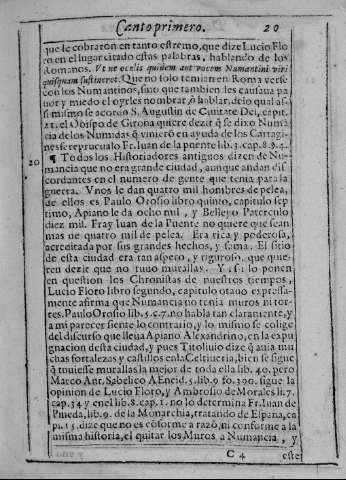 Canto primero. 20
que le cobraron en tanto estremo, que dize Lucio Flo
ro en el lugar citado estas palabras, hablando de los
Romanos. Vt ne oculis quidem aut vocem Numantini viri
quisquam sustineret. Que no solo temian en Roma verse
con los Numantinos, sino que tambien les causaua pa
uor y miedo el oyrles nombrar, ò hablar, delo qual as-
si mismo se acordò S. Augustin de Ciuitate Dei, capit.
21. el Obispo de Girona quiere dezir q̃ se dixo Numã
cia de los Numidas q̃ vinierõ en ayuda de los Cartagi-
neses reprueualo Fr. Iuan de la puente lib. 3. cap. 8. 9. 4.
20 ¶ Todos los Historiadores antiguos dizen de Nu-
mancia que no era grande ciudad, aunque andan dis
cordantes en el numero de gente que tenia para la
guerra. Vnos le dan quatro mil hombres de pelea,
de ellos es Paulo Orosio libro quinto, capitulo sep
timo, Apiano le da ocho mil, y Belleyo Paterculo
diez mil. Fray Iuan de la Puente no quiere que sean
mas de quatro mil de pelea. Era rica y poderosa,
acreditada por sus grandes hechos, y fama. El sitio
de esta ciudad era tan aspero, y riguroso, que quie-
ren dezir que no tuuo murallas. Y assi lo ponen
en question los Chronistas de nuestros tiempos,
Lucio Floro libro segundo, capitulo otauo expressa-
mente afirma que Numancia no tenia muros ni tor-
tes. Paulo Orosio lib. 5. c. 7. no habla tan claramente, y
a mi parecer siente lo contrario, y lo mismo se colige
del discurso que lleua Apiano Alexandrino, en la expu
gnacion desta ciudad, y pues Titoliuio dize q̃ auia mu
chas fortalezas y castillos enla Celtiueria, bien se sigue
q̃ tuuiesse murallas la mejor de toda ella lib. 40. pero
Marco Ant. Sabelico AEneid. 5. lib. 9 fo. 300. sigue la
opinion de Lucio Floro, y Ambrosio de Morales li. 7.
cap. 34 y en el lib. 8. cap. 1. no lo determina Fr. Iuan de
Pineda, lib. 9. de la Monarchia, tratando de España, ca
pi. 15. dize que no es cõforme a razõ, ni conforme a la
misma historia, el quitar los Muros a Numancia, y
C 4 este